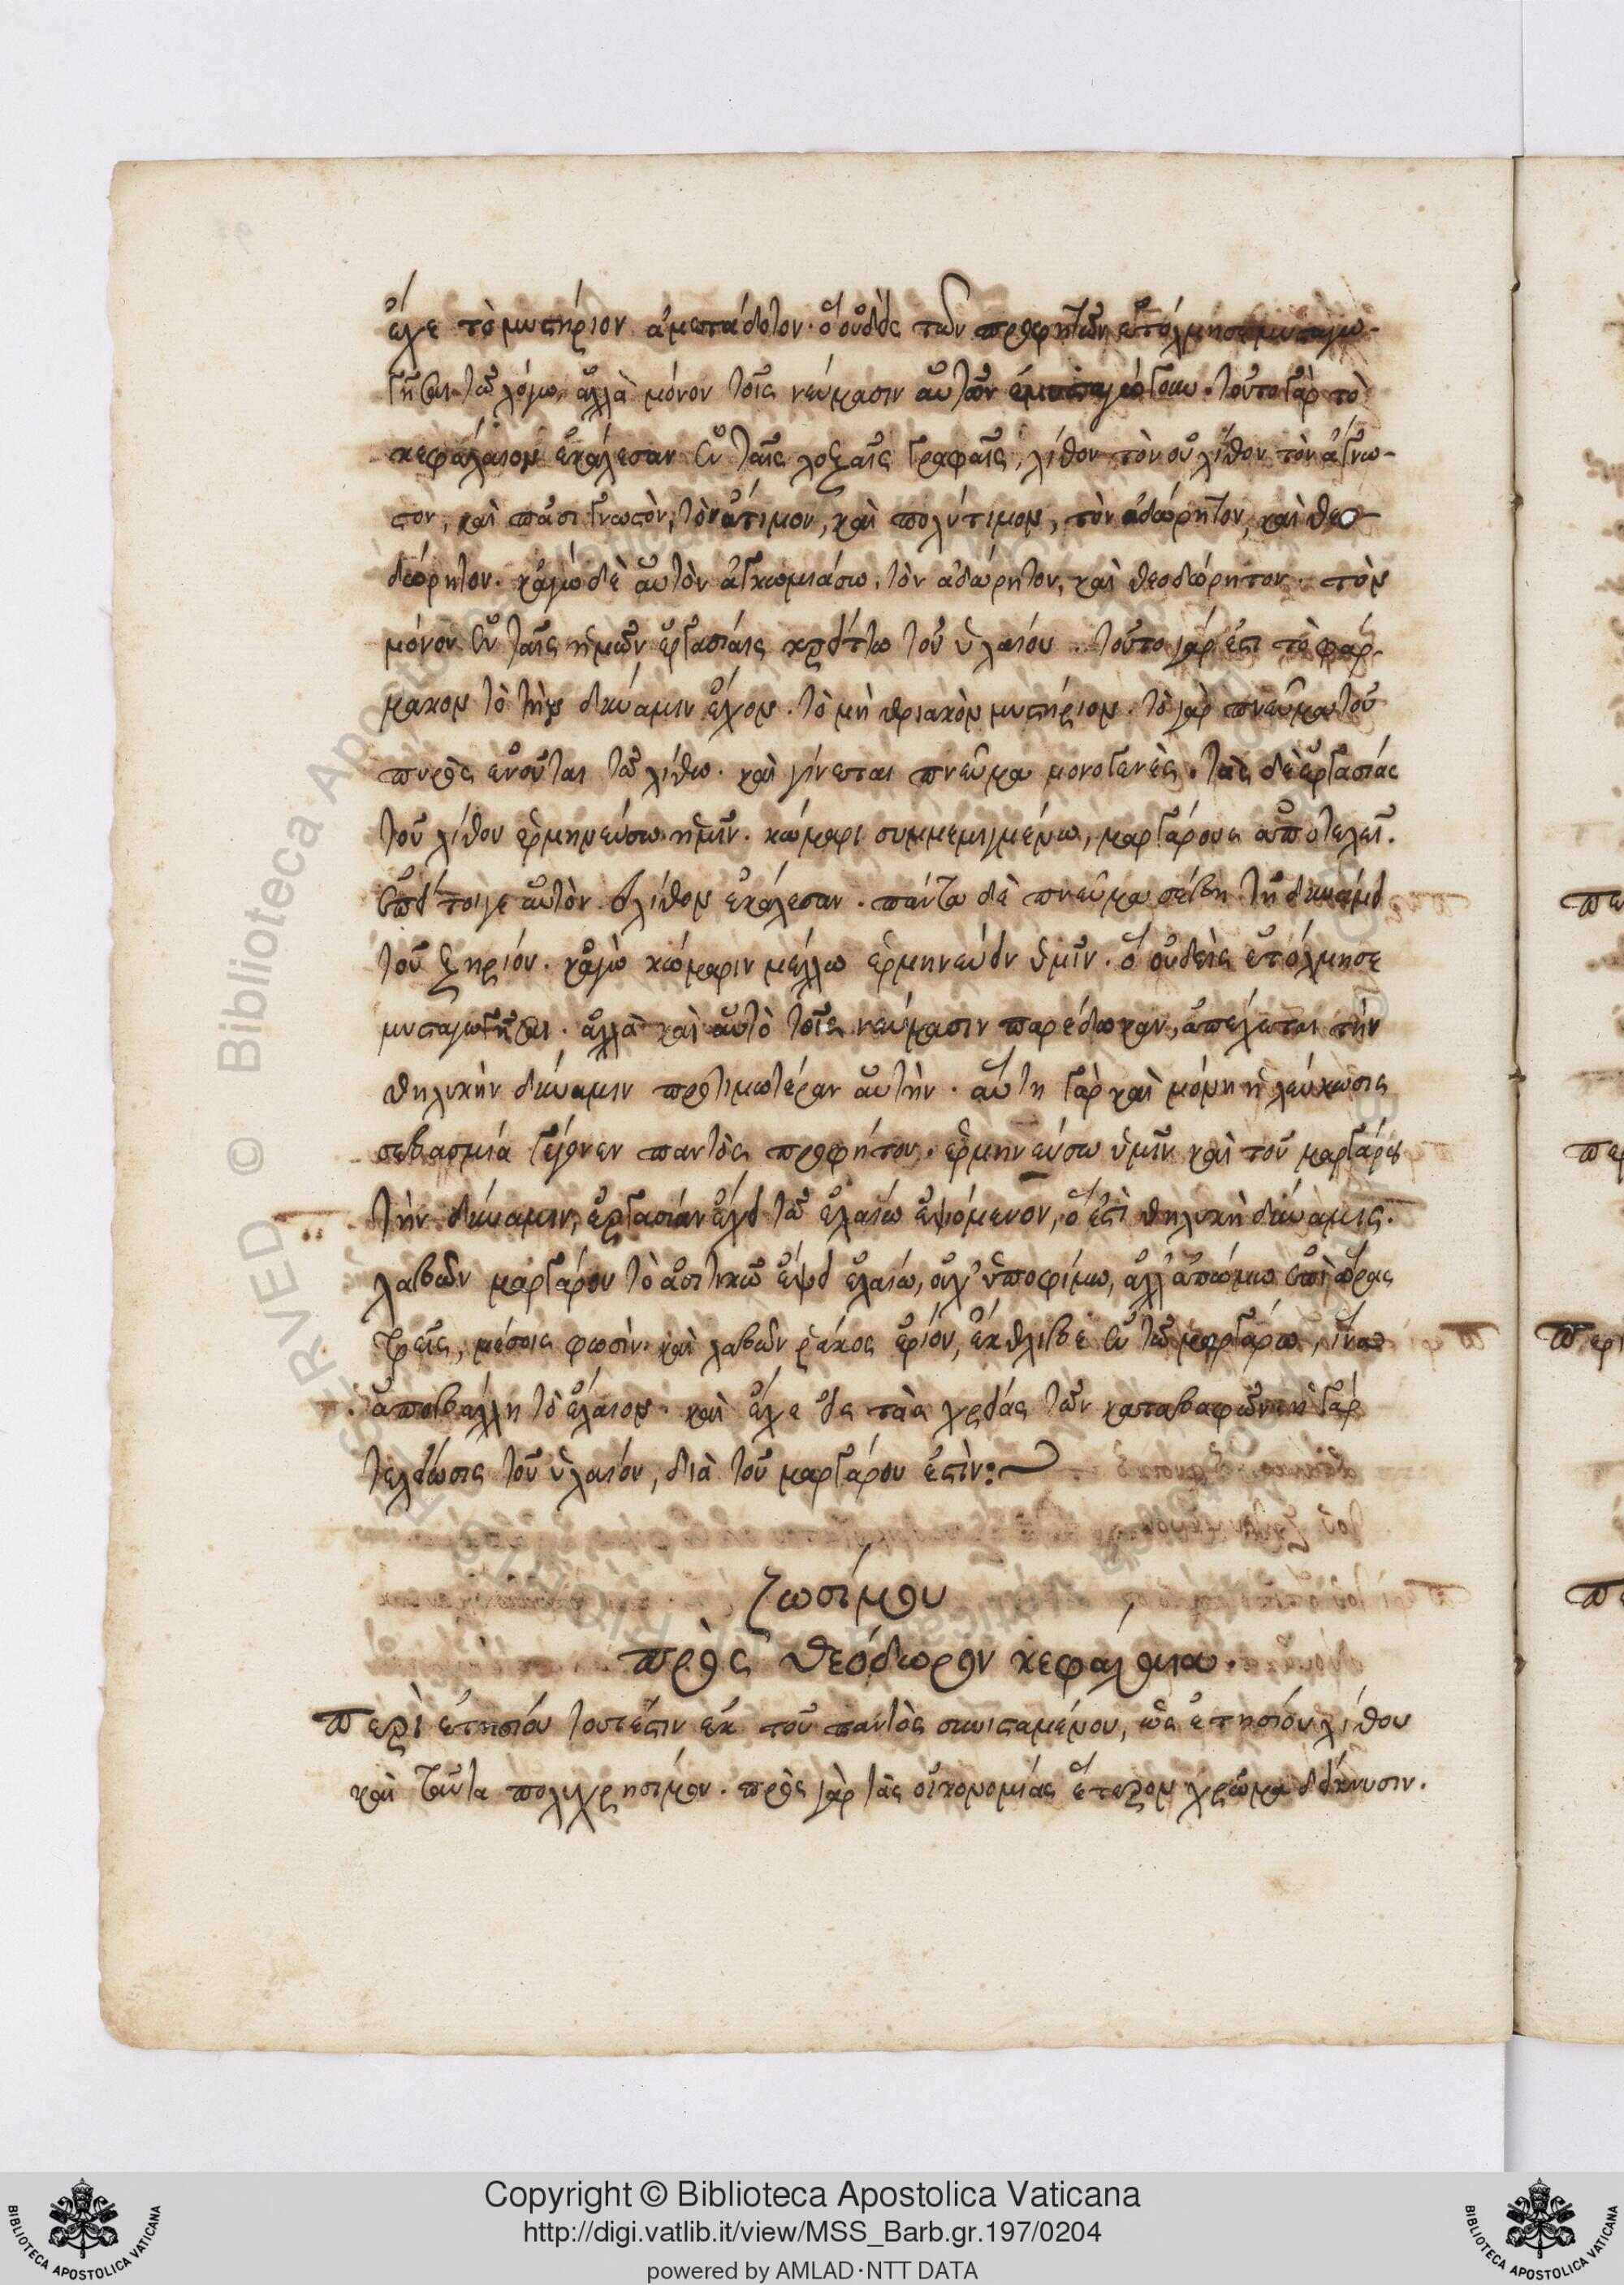 ἔχε τὸ μυστήριον ἀμετάδοτον. ὃ οὐδεὶς τῶν προφητῶν ἐτόλμησε μυσταγω-
γῆσαι τῶ λόγω, ἀλλὰ μόνον τοῖς νεύμασιν αὐτῶν ἐμυσταγώγουν. τοῦτο γὰρ τὸ
κεφάλαιον ἐκάλεσαν ἐν ταῖς λοξαῖς γραφαῖς, λίθον τὸν οὐ λίθον τὸν ἄγνω-
στον, καὶ πᾶσι γνωστὸν, τὸν ἄτιμον, καὶ πολύτιμον, τὸν ἀδώρητον, καὶ θεο
δώρητον. κἀγὼ δὲ αὐτὸν ἀγκωμιάσω, τὸν ἀδώρητον, καὶ θεοδώρητον. τὸν
μόνον ἐν ταῖς ἡμῶν ἐργασίαις κρείττω τοῦ ὑλαίου. τοῦτο γάρ ἐστι τὸ φάρ-
μακον τὸ τὴν δύναμιν ἔχον. τὸ μὴ θριακὸν μυστήριον. τὸ γὰρ πνεῦμα τοῦ
πυρὸς ἑνοῦται τῶ λίθω. καὶ γίνεται πνεῦμα μονογενές. τὰς δὲ ἐργασίας
τοῦ λίθου ἑρμηνεύσω ἡμῖν. κώμαρι συμμεμιγμένω, μαργάρους ἀποτελεῖ.
ἐπεί τοιγε αὐτὸν λίθον ἐκάλεσαν. πάντα δὲ πνεῦμα σέβη τῆ δυνάμει
τοῦ ξηρίου. κἀγὼ κώμαριν μέλλω ἑρμηνεύειν ὑμῖν. ὃ οὐδεὶς ἐτόλμησε
μυσταγωγῆσαι. ἀλλὰ καὶ αὐτὸ τοῖς νεύμασιν παρέδωκαν, ἀπέχεται τὴν
θηλυκὴν δύναμιν προτιμωτέραν αὐτὴν. αὕτη γὰρ καὶ μόνη ἡ λεύκωσις
σεβασμία γέγονεν παντὸς προφήτου. ἑρμηνεύσω ὑμῖν καὶ τοῦ μαργάρου
τὴν δύναμιν, ἐργασίαν ἔχει τῶ ἐλαίω ἑψόμενον, ὅ ἐστι θηλυκὴ δύναμις.
λαβὼν μαργάρου τὸ ἀσιτικῶ ἕψει ἐλαίω, οὐχ ὑποφίμω, ἀλλ' ἀπώμω ἐπὶ ὥρας
τρεῖς, μέσοις φωσίν. καὶ λαβὼν ῥάκος ἐρίου, ἔκθλιβε ἐν τῶ μαργάρω, ἵνα
ἀποβάλλη τὸ ἔλαιον. καὶ ἔχε εἰς τὰς χρείας τῶν καταβαφῶν. ἡ γάρ
τελείωσις τοῦ ὑλαίου, διὰ τοῦ μαργάρου ἐστίν:
ζωσίμου
πρὸς Θεόδωρον κεφάλαια.
Περὶ ἐτησίου τουτέστιν ἐκ τοῦ παντὸς συνισταμένου, ὡς ἐτησίου λίθου
καὶ ταῦτα πολυχρησίμου. πρὸς γὰρ τὰς οἰκονομίας ἕτερον χρῶμα δείκνυσιν.
RESERVED © Biblioteca Apostolica Vaticana
Copyright © Biblioteca Apostolica Vaticana
http://digi.vatlib.it/view/MSS_Barb.gr.197/0204
powered by AMLAD·NTT DATA
BIBLIOTECA APOSTOLICA VATICANA
BIBLIOTECA APOSTOLICA VATICANA